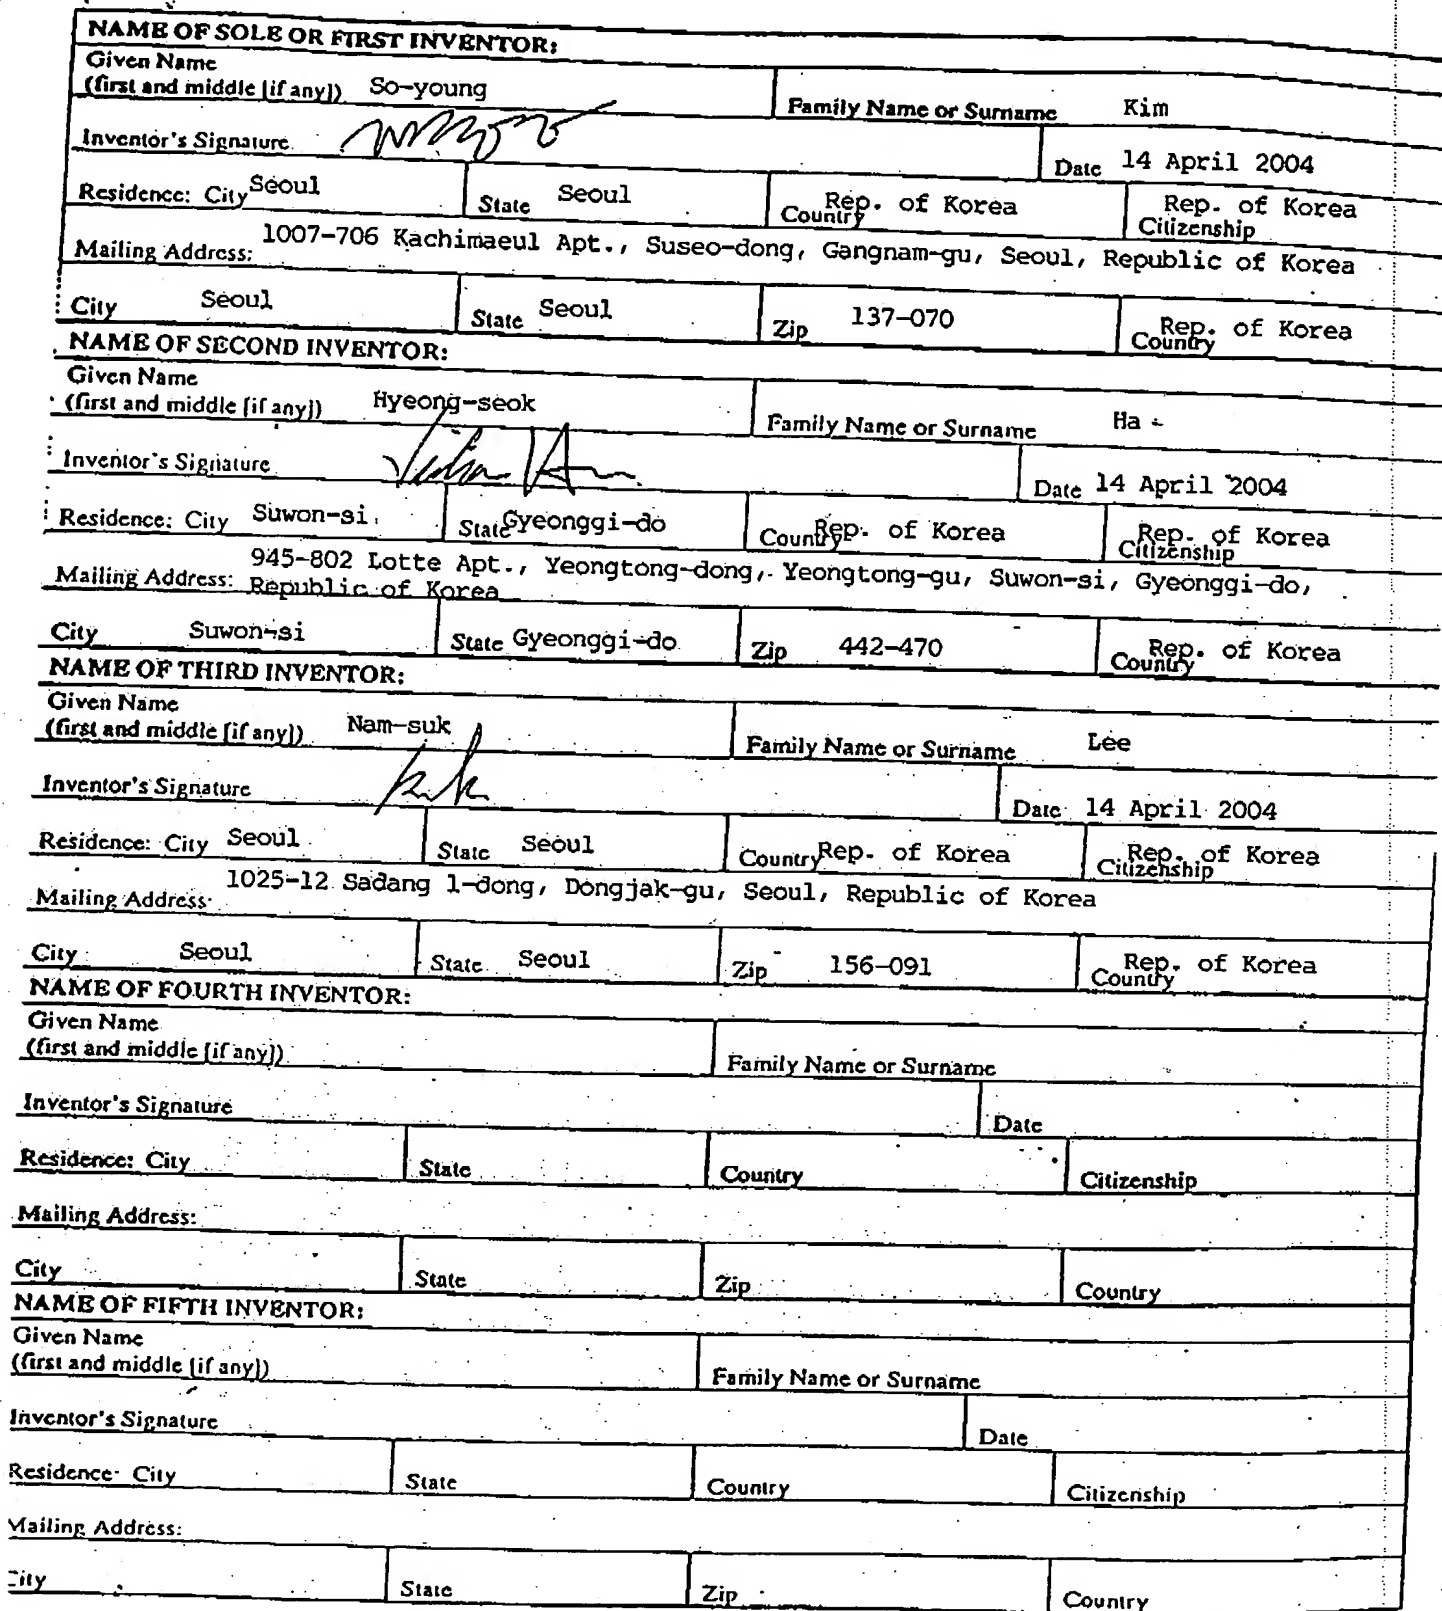 NAME OF SOLE OR FIRST INVENTOR:
Given Name
(first and middle [if any]) So-young Family Name or Surname Kim
Inventor's Signature Date 14 April 2004
Residence: City Seoul State Seoul Country Rep. of Korea Citizenship Rep. of Korea
Mailing Address: 1007-706 Kachimaeul Apt., Suseo-dong, Gangnam-gu, Seoul, Republic of Korea
City Seoul State Seoul Zip 137-070 Country Rep. of Korea
NAME OF SECOND INVENTOR:
Given Name
(first and middle [if any]) Hyeong-seok Family Name or Surname Ha
Inventor's Signature Date 14 April 2004
Residence: City Suwon-si State Gyeonggi-do Country Rep. of Korea Citizenship Rep. of Korea
Mailing Address: 945-802 Lotte Apt., Yeongtong-dong, Yeongtong-gu, Suwon-si, Gyeonggi-do,
Republic of Korea
City Suwon-si State Gyeonggi-do Zip 442-470 Country Rep. of Korea
NAME OF THIRD INVENTOR:
Given Name
(first and middle [if any]) Nam-suk Family Name or Surname Lee
Inventor's Signature Date 14 April 2004
Residence: City Seoul State Seoul Country Rep. of Korea Citizenship Rep. of Korea
Mailing Address 1025-12 Sadang 1-dong, Dongjak-gu, Seoul, Republic of Korea
City Seoul State Seoul Zip 156-091 Country Rep. of Korea
NAME OF FOURTH INVENTOR:
Given Name
(first and middle [if any]) Family Name or Surname
Inventor's Signature Date
Residence: City State Country Citizenship
Mailing Address:
City State Zip Country
NAME OF FIFTH INVENTOR:
Given Name
(first and middle [if any]) Family Name or Surname
Inventor's Signature Date
Residence City State Country Citizenship
Mailing Address:
City State Zip Country